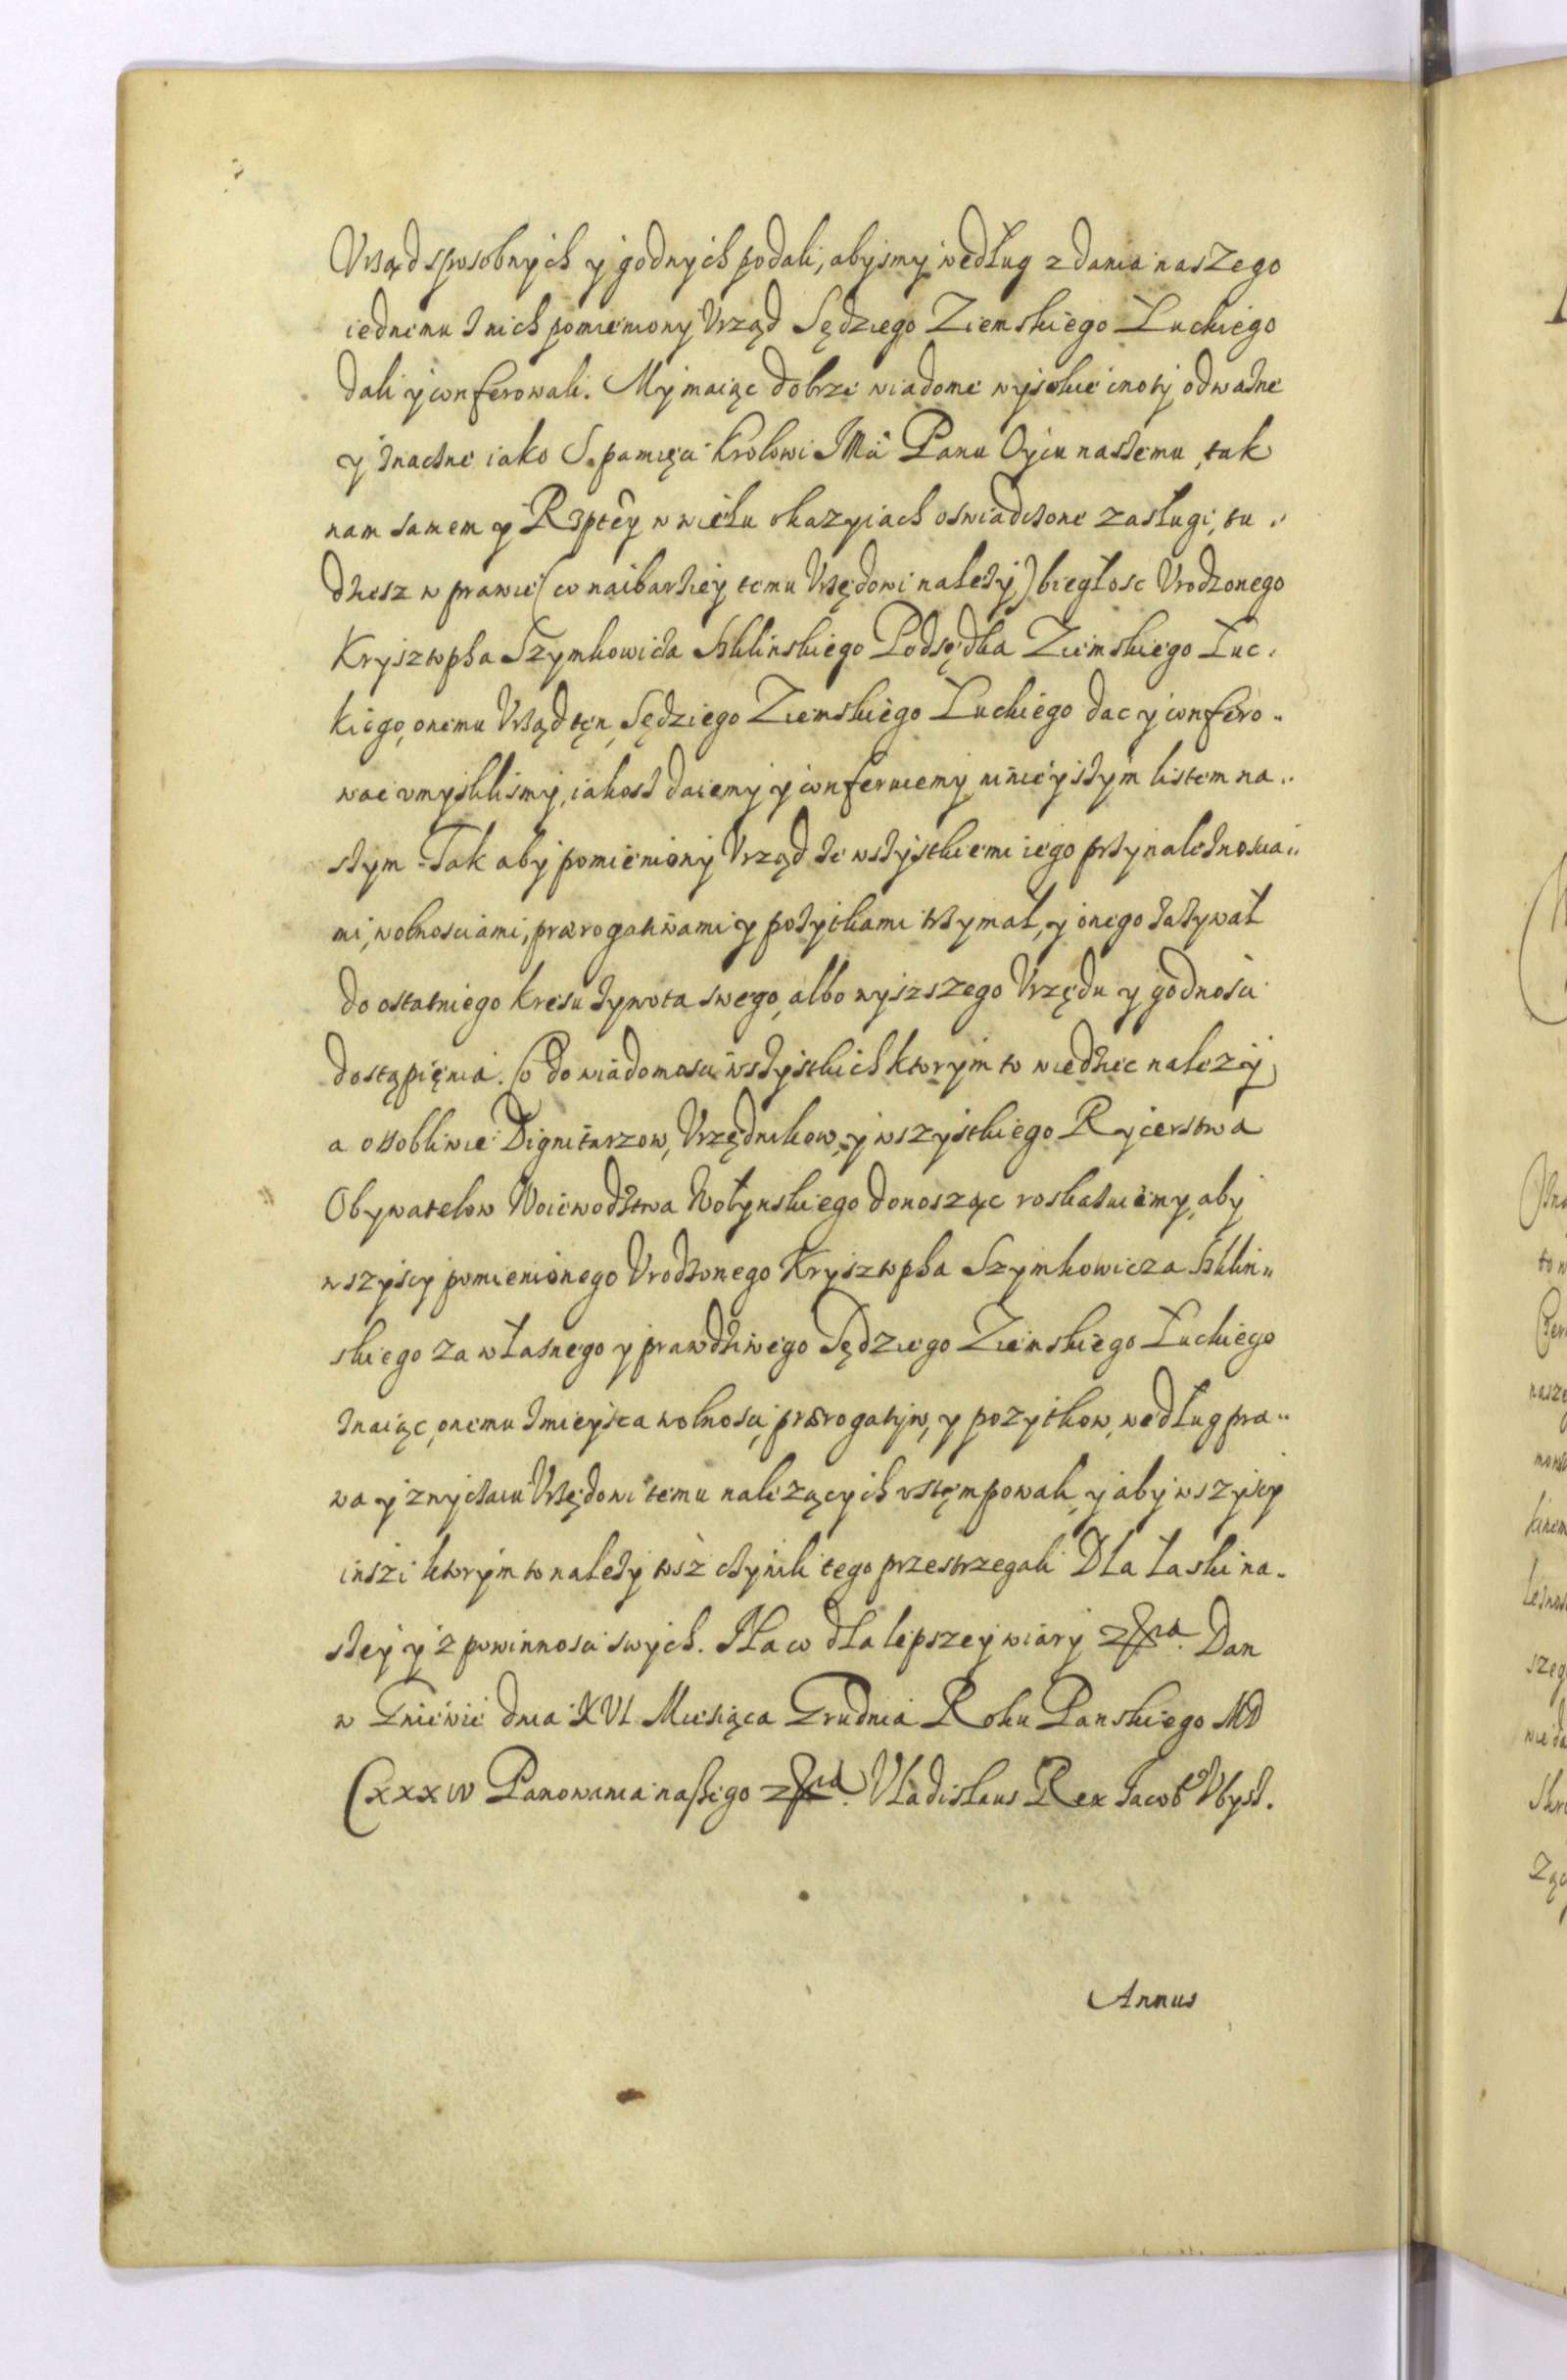 Vrząd sposobnych y godnych podali, abysmy według zdania naszego
iednemu z nich pomieniony Vrząd Sędziego Ziemskiego Łuckiego
dali y conferowali. My maiąc dobrze wiadome wysokie cnoty odważne
y znaczne iako S. pamięci Krolowi JMći Panu Oycu naszemu, tak
nam samem y Rzptey w wielu okazyiach oswiadczone zasługi, tu„
dziesz w prawie (co naibarziey temu Vrzędowi należy) biegłosc Vrodzonego
Krysztopha Szymkowicza Szklinskiego Podsędka Ziemskiego Łuc„
kiego, onemu Vrząd ten, Sędziego Ziemskiego Łuckiego dac y confero„
wac vmyslilismy, iakosz daiemy y conferuiemy ninieyszym listem na„
szym. Tak aby pomieniony Vrząd ze wszystkiemi iego przynależnoscia„
mi, wolnosciami, prærogatiwami y pożytkami trzymał, y onego zażywał
do ostatniego kresu żywota swego, albo wyszszego Vrzędu y godnosci
dostąpięnia. Co do wiadomosci wszystkich ktorym to wiedziec należy,
a osobliwie Dignitarzow, Vrzędnikow, y wszystkiego Rycerstwa
Obywatelow Woiewodztwa Wołynskiego donosząc roskazuiemy, aby
wszyscy pomienionego Vrodzonego Krysztopha Szymkowicza Szklin„
skiego za własnego y prawdziwego Sędziego Ziemskiego Łuckiego
znaiąc, onemu z mieysca wolnosci, prærogatyw, y pozytkow, według pra„
wa y zwyczaiu Vrzędowi temu należących vstęmpowali, y aby wszyscy
inszi ktorym to należy tosz czynili tego przestrzegali Dla łaski na„
szey y z powinnosci swych. Na co dla lepszey wiary Dan
w Gniewie dnia XVI Miesiąca Grudnia Roku Panskiego MD
CXXXIV Panowania naszego Vladislaus Rex Jacob
Annus